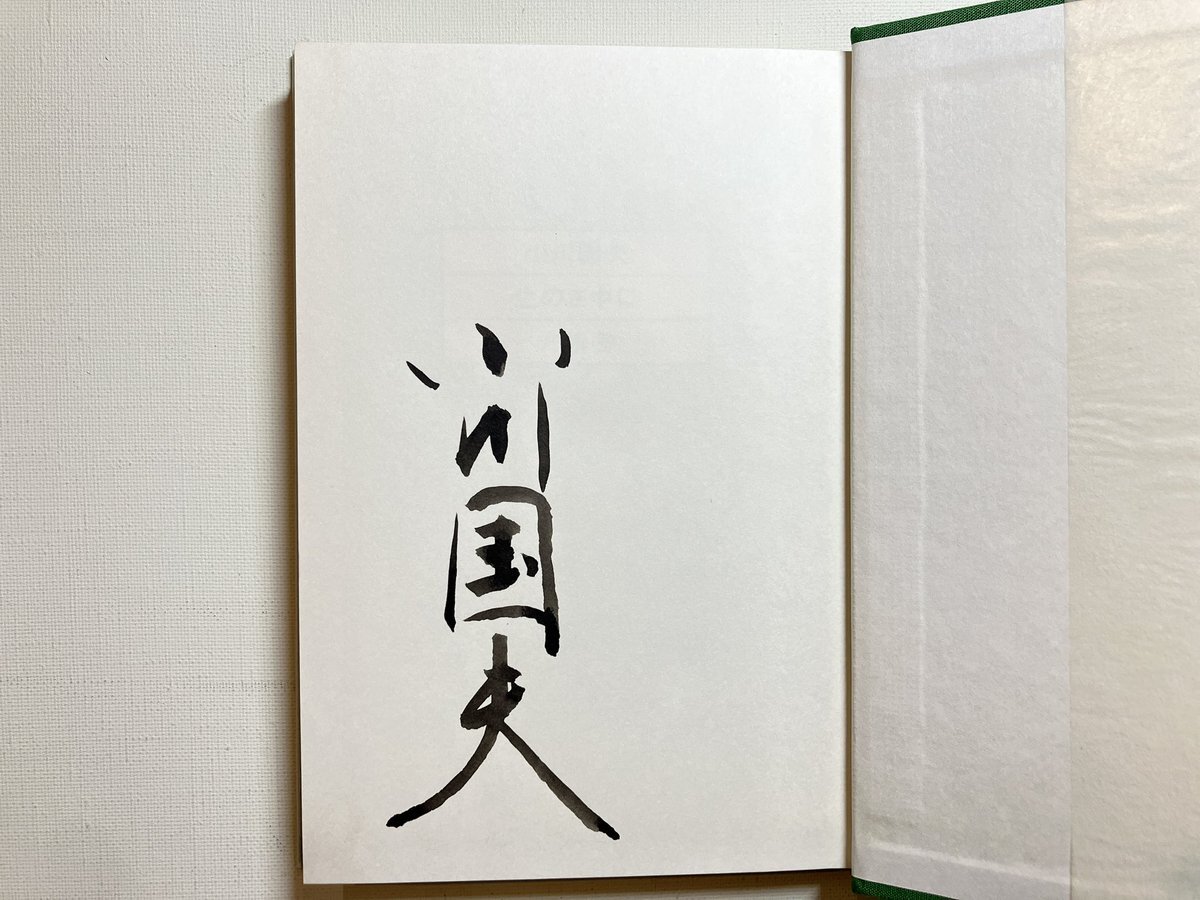 小川国夫